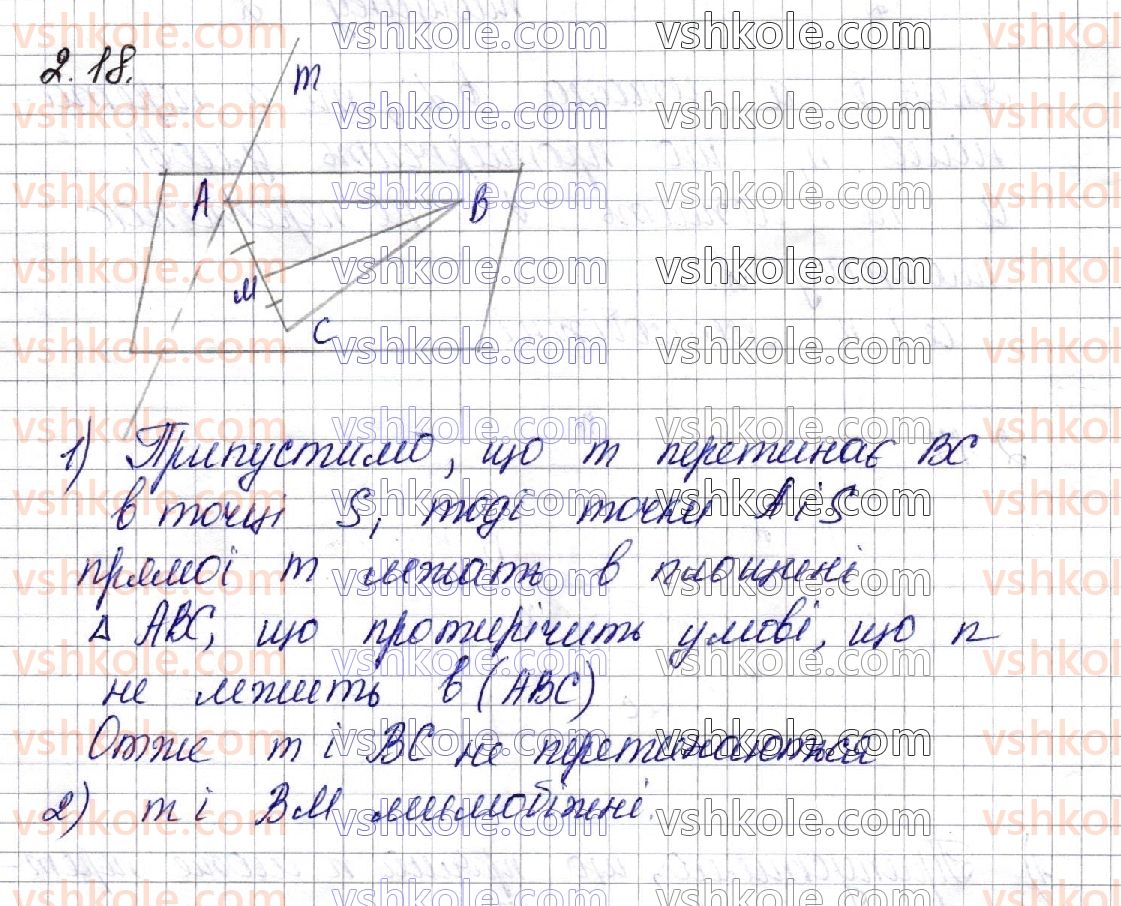 2.18.
m
A
B
M
C
1) Припустимо, що m перетинає BC
в точці S, тоді точки A і S
прямої m лежать в площині
△ ABC, що протирічить умові, що n
не лежить в (ABC)
Отже m і BC не перетинаються
2) m і BM мимобіжні.
vshkole.com